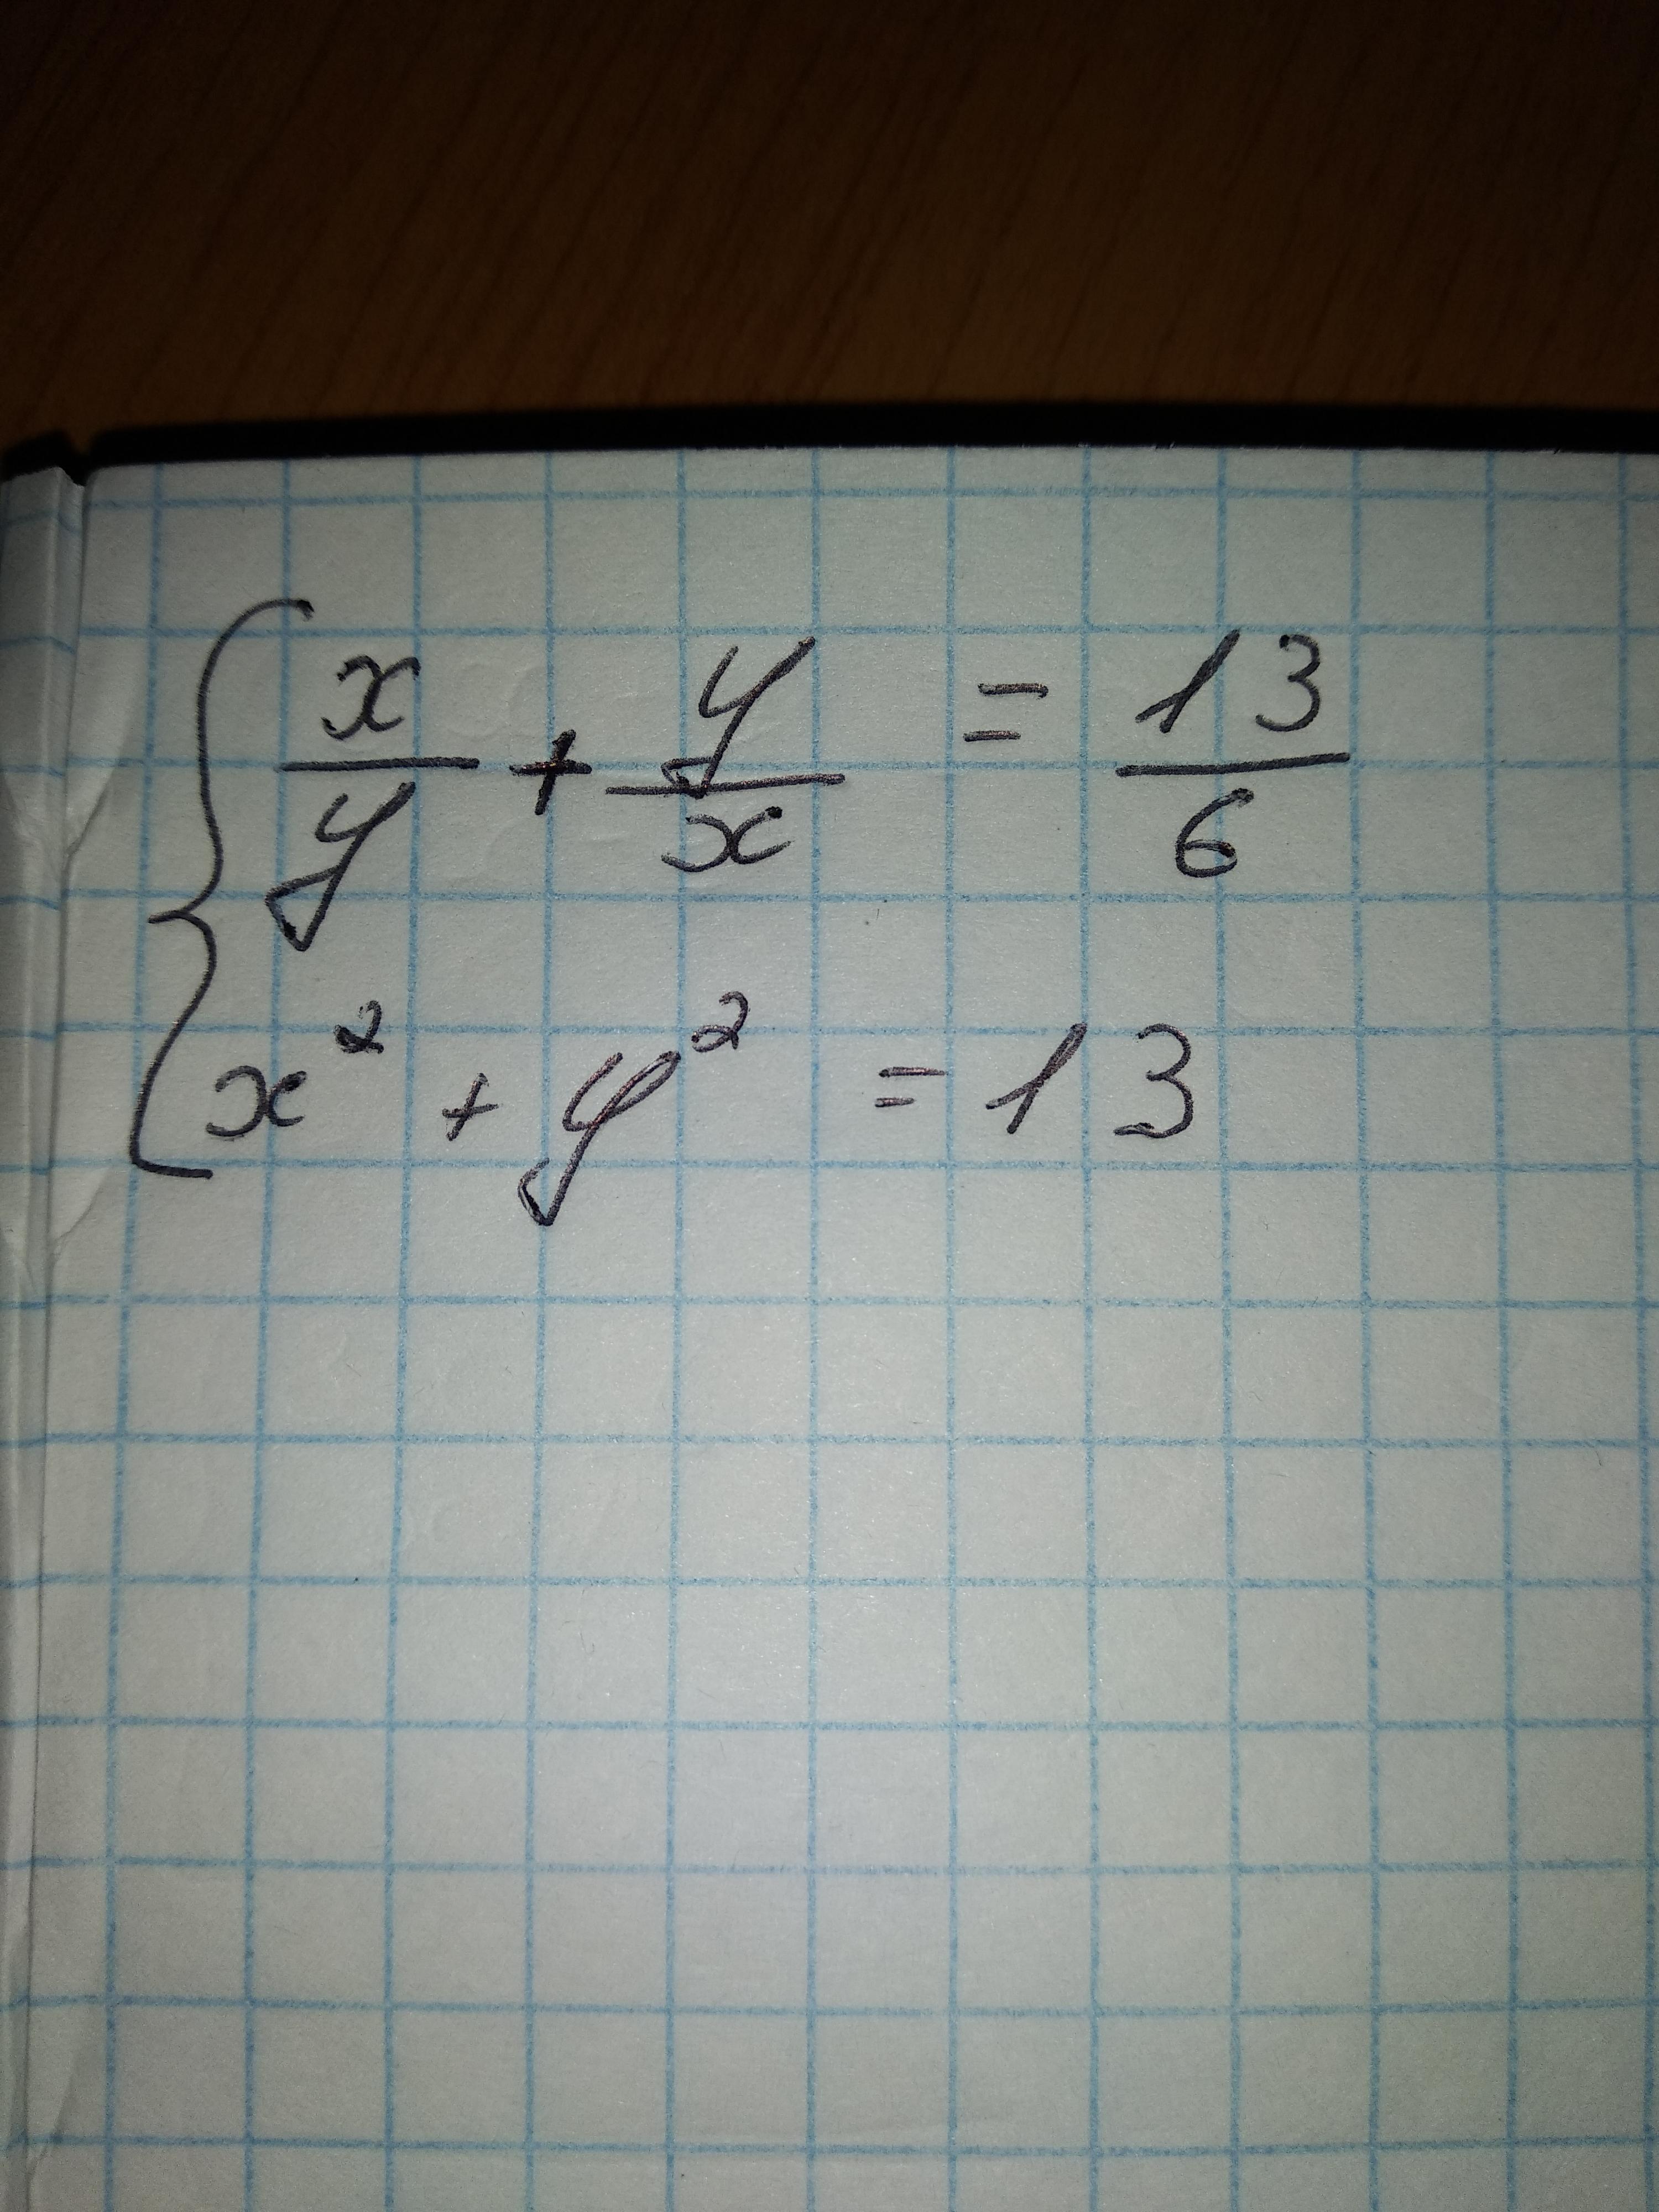 x/y + y/x = 13/6
x² + y² = 13